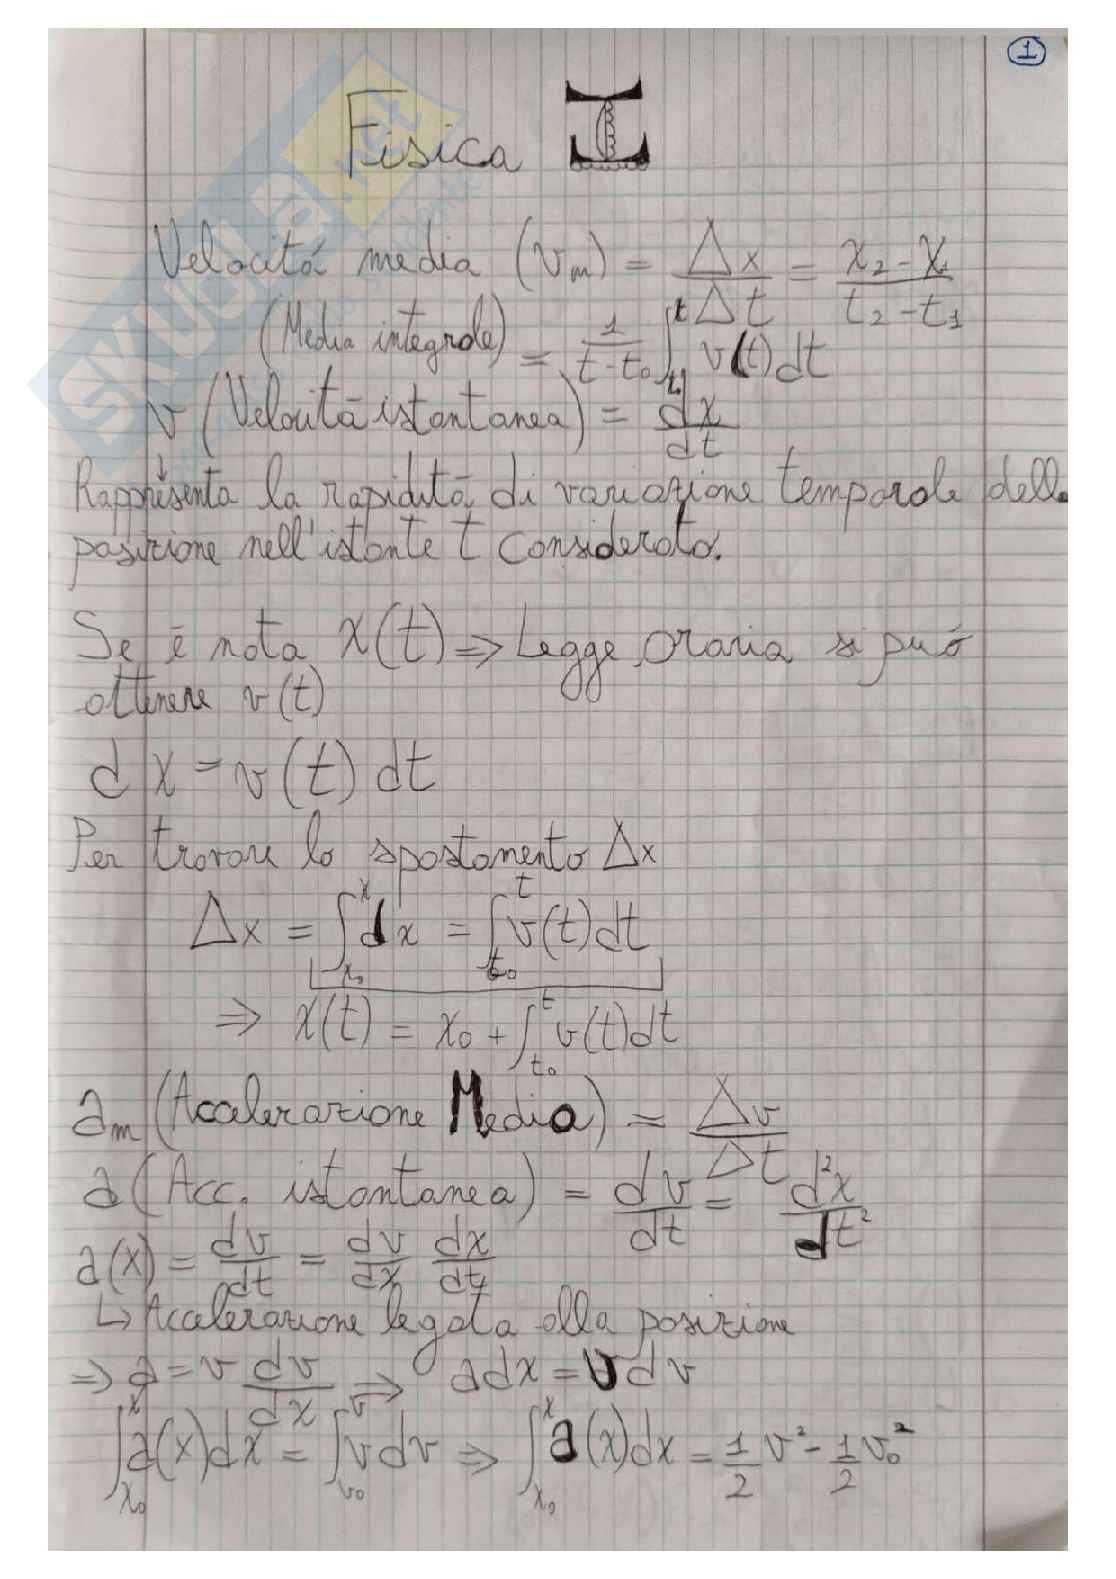 1
Fisica I
SKUOLA.net
Velocitá media (vm) = Δx/Δt = (x₂-x₁)/(t₂-t₁)
(Media integrale) = 1/(t-t₀) ∫_{t₀}^{t} v(t)dt
v (Velocitá istantanea) = dx/dt
↓
Rappresenta la rapiditá di variazione temporale della
posizione nell'istante t considerato.
Se é nota x(t) ⇒ Legge oraria si puó
ottenere v(t)
dx = v(t) dt
Per trovare lo spostamento Δx
Δx = ∫_{x₀}^{x} dx = ∫_{t₀}^{t} v(t)dt
⇒ x(t) = x₀ + ∫_{t₀}^{t} v(t)dt
am (Accelerazione Media) = Δv/Δt
a (Acc. istantanea) = dv/dt = d²x/dt²
a(x) = dv/dt = dv/dx dx/dt
↳ Accelerazione legata alla posizione
⇒ a = v dv/dx ⇒ adx = vdv
∫_{x₀}^{x} a(x)dx = ∫_{v₀}^{v} v dv ⇒ ∫_{x₀}^{x} a(x)dx = 1/2 v² - 1/2 v₀²